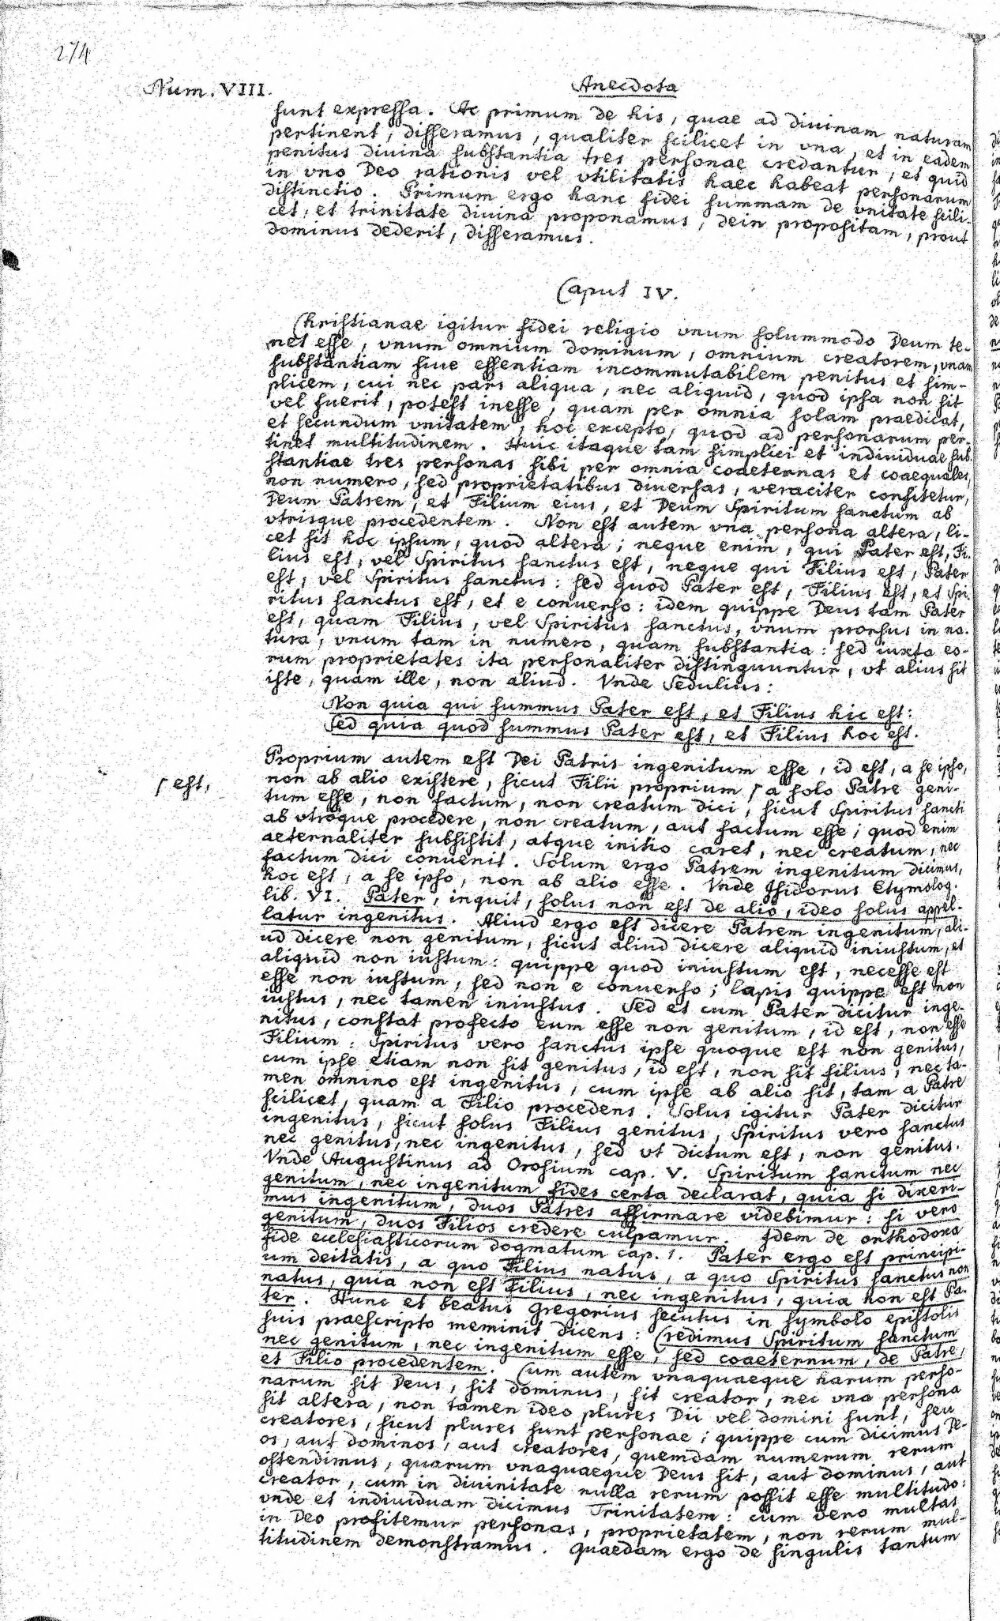 274
Num. VIII.
Anecdota
sunt expressa. Ac primum de his, quae ad diuinam naturam
pertinent, disseramus, qualiter scilicet in vna, et in eadem
penitus diuina substantia tres personae credantur, et quid
in vno Deo rationis vel vtilitatis haec habeat personarum
distinctio. Primum ergo hanc fidei summam de vnitate scili-
cet, et trinitate diuina proponamus, dein propositam, prout
dominus dederit, disseramus.
Caput IV.
Christianae igitur fidei religio vnum solummodo Deum te-
net esse, vnum omnium dominum, omnium creatorem, vnam
substantiam siue essentiam incommutabilem penitus et sim-
plicem, cui nec pars aliqua, nec aliquid, quod ipsa non sit
vel fuerit, potest inesse, quam per omnia solam praedicat,
et secundum vnitatem, hoc excepto, quod ad personarum per-
tinet multitudinem. Huic itaque tam simplici et indiuiduae sub-
stantiae tres personas sibi per omnia coaeternas et coaequales,
non numero, sed proprietatibus diuersas, veraciter confitetur,
Deum Patrem, et Filium eius, et Deum Spiritum sanctum ab
vtrisque procedentem. Non est autem vna persona altera, li-
cet sit hoc ipsum, quod altera; neque enim, qui Pater est, Fi-
lius est, vel Spiritus sanctus est, neque qui Filius est, Pater
est, vel Spiritus sanctus: sed quod Pater est, Filius est, et Spi-
ritus sanctus est, et e conuerso: idem quippe Deus tam Pater
est, quam Filius, vel Spiritus sanctus, vnum prorsus in na-
tura, vnum tam in numero, quam substantia: sed iuxta eo-
rum proprietates ita personaliter distinguuntur, vt alius sit
iste, quam ille, non aliud. Vnde Sedulius:
Non quia qui summus Pater est, et Filius hic est:
Sed quia quod summus Pater est, et Filius hoc est.
Proprium autem est Dei Patris ingenitum esse, id est, a se ipso,
non ab alio existere, sicut Filii proprium ſ a solo Patre geni-
ſ est,
tum esse, non factum, non creatum dici, sicut Spiritus sancti
ab vtroque procedere, non creatum, aut factum esse; quod enim
aeternaliter subsistit, atque initio caret, nec creatum, nec
factum dici conuenit. Solum ergo Patrem ingenitum dicimus,
hoc est, a se ipso, non ab alio esse. Vnde Isidorus Etymolog.
lib. VI. Pater, inquit, solus non est de alio, ideo solus appel-
latur ingenitus. Aliud ergo est dicere Patrem ingenitum, ali-
ud dicere non genitum, sicut aliud dicere aliquid iniustum, et
aliquid non iustum: quippe quod iniustum est, necesse est
esse non iustum, sed non e conuerso; lapis quippe est non
iustus, nec tamen iniustus. Sed et cum Pater dicitur inge-
nitus, constat profecto eum esse non genitum, id est, non esse
Filium: Spiritus vero sanctus ipse quoque est non genitus,
cum ipse etiam non sit genitus, id est, non sit filius, nec ta-
men omnino est ingenitus, cum ipse ab alio sit, tam a Patre
scilicet, quam a Filio procedens. Solus igitur Pater dicitur
ingenitus, sicut solus Filius genitus, Spiritus vero sanctus
nec genitus, nec ingenitus, sed vt dictum est, non genitus.
Vnde Augustinus ad Orosium cap. V. Spiritum sanctum nec
genitum, nec ingenitum fides certa declarat, quia si dixeri-
mus ingenitum, duos Patres affirmare videbimur: si vero
genitum, duos Filios credere culpamur. Idem de orthodoxa
fide ecclesiasticorum dogmatum cap. 1. Pater ergo est principi-
um deitatis, a quo Filius natus, a quo Spiritus sanctus non
natus, quia non est Filius, nec ingenitus, quia non est Pa-
ter. Hunc et beatus Gregorius secutus in symbolo epistolis
suis praescripto meminit dicens: Credimus Spiritum sanctum
nec genitum, nec ingenitum esse, sed coaeternum, de Patre,
et Filio procedentem. Cum autem vnaquaeque harum perso-
narum sit Deus, sit dominus, sit creator, nec vna persona
sit altera, non tamen ideo plures Dii vel domini sunt, seu
creatores, sicut plures sunt personae; quippe cum dicimus De-
os, aut dominos, aut creatores, quemdam numerum rerum
ostendimus, quarum vnaquaeque Deus sit, aut dominus, aut
creator, cum in diuinitate nulla rerum possit esse multitudo:
vnde et indiuiduam dicimus Trinitatem: cum vero multas
in Deo profitemur personas, proprietatem, non rerum mul-
titudinem demonstramus. Quaedam ergo de singulis tantum